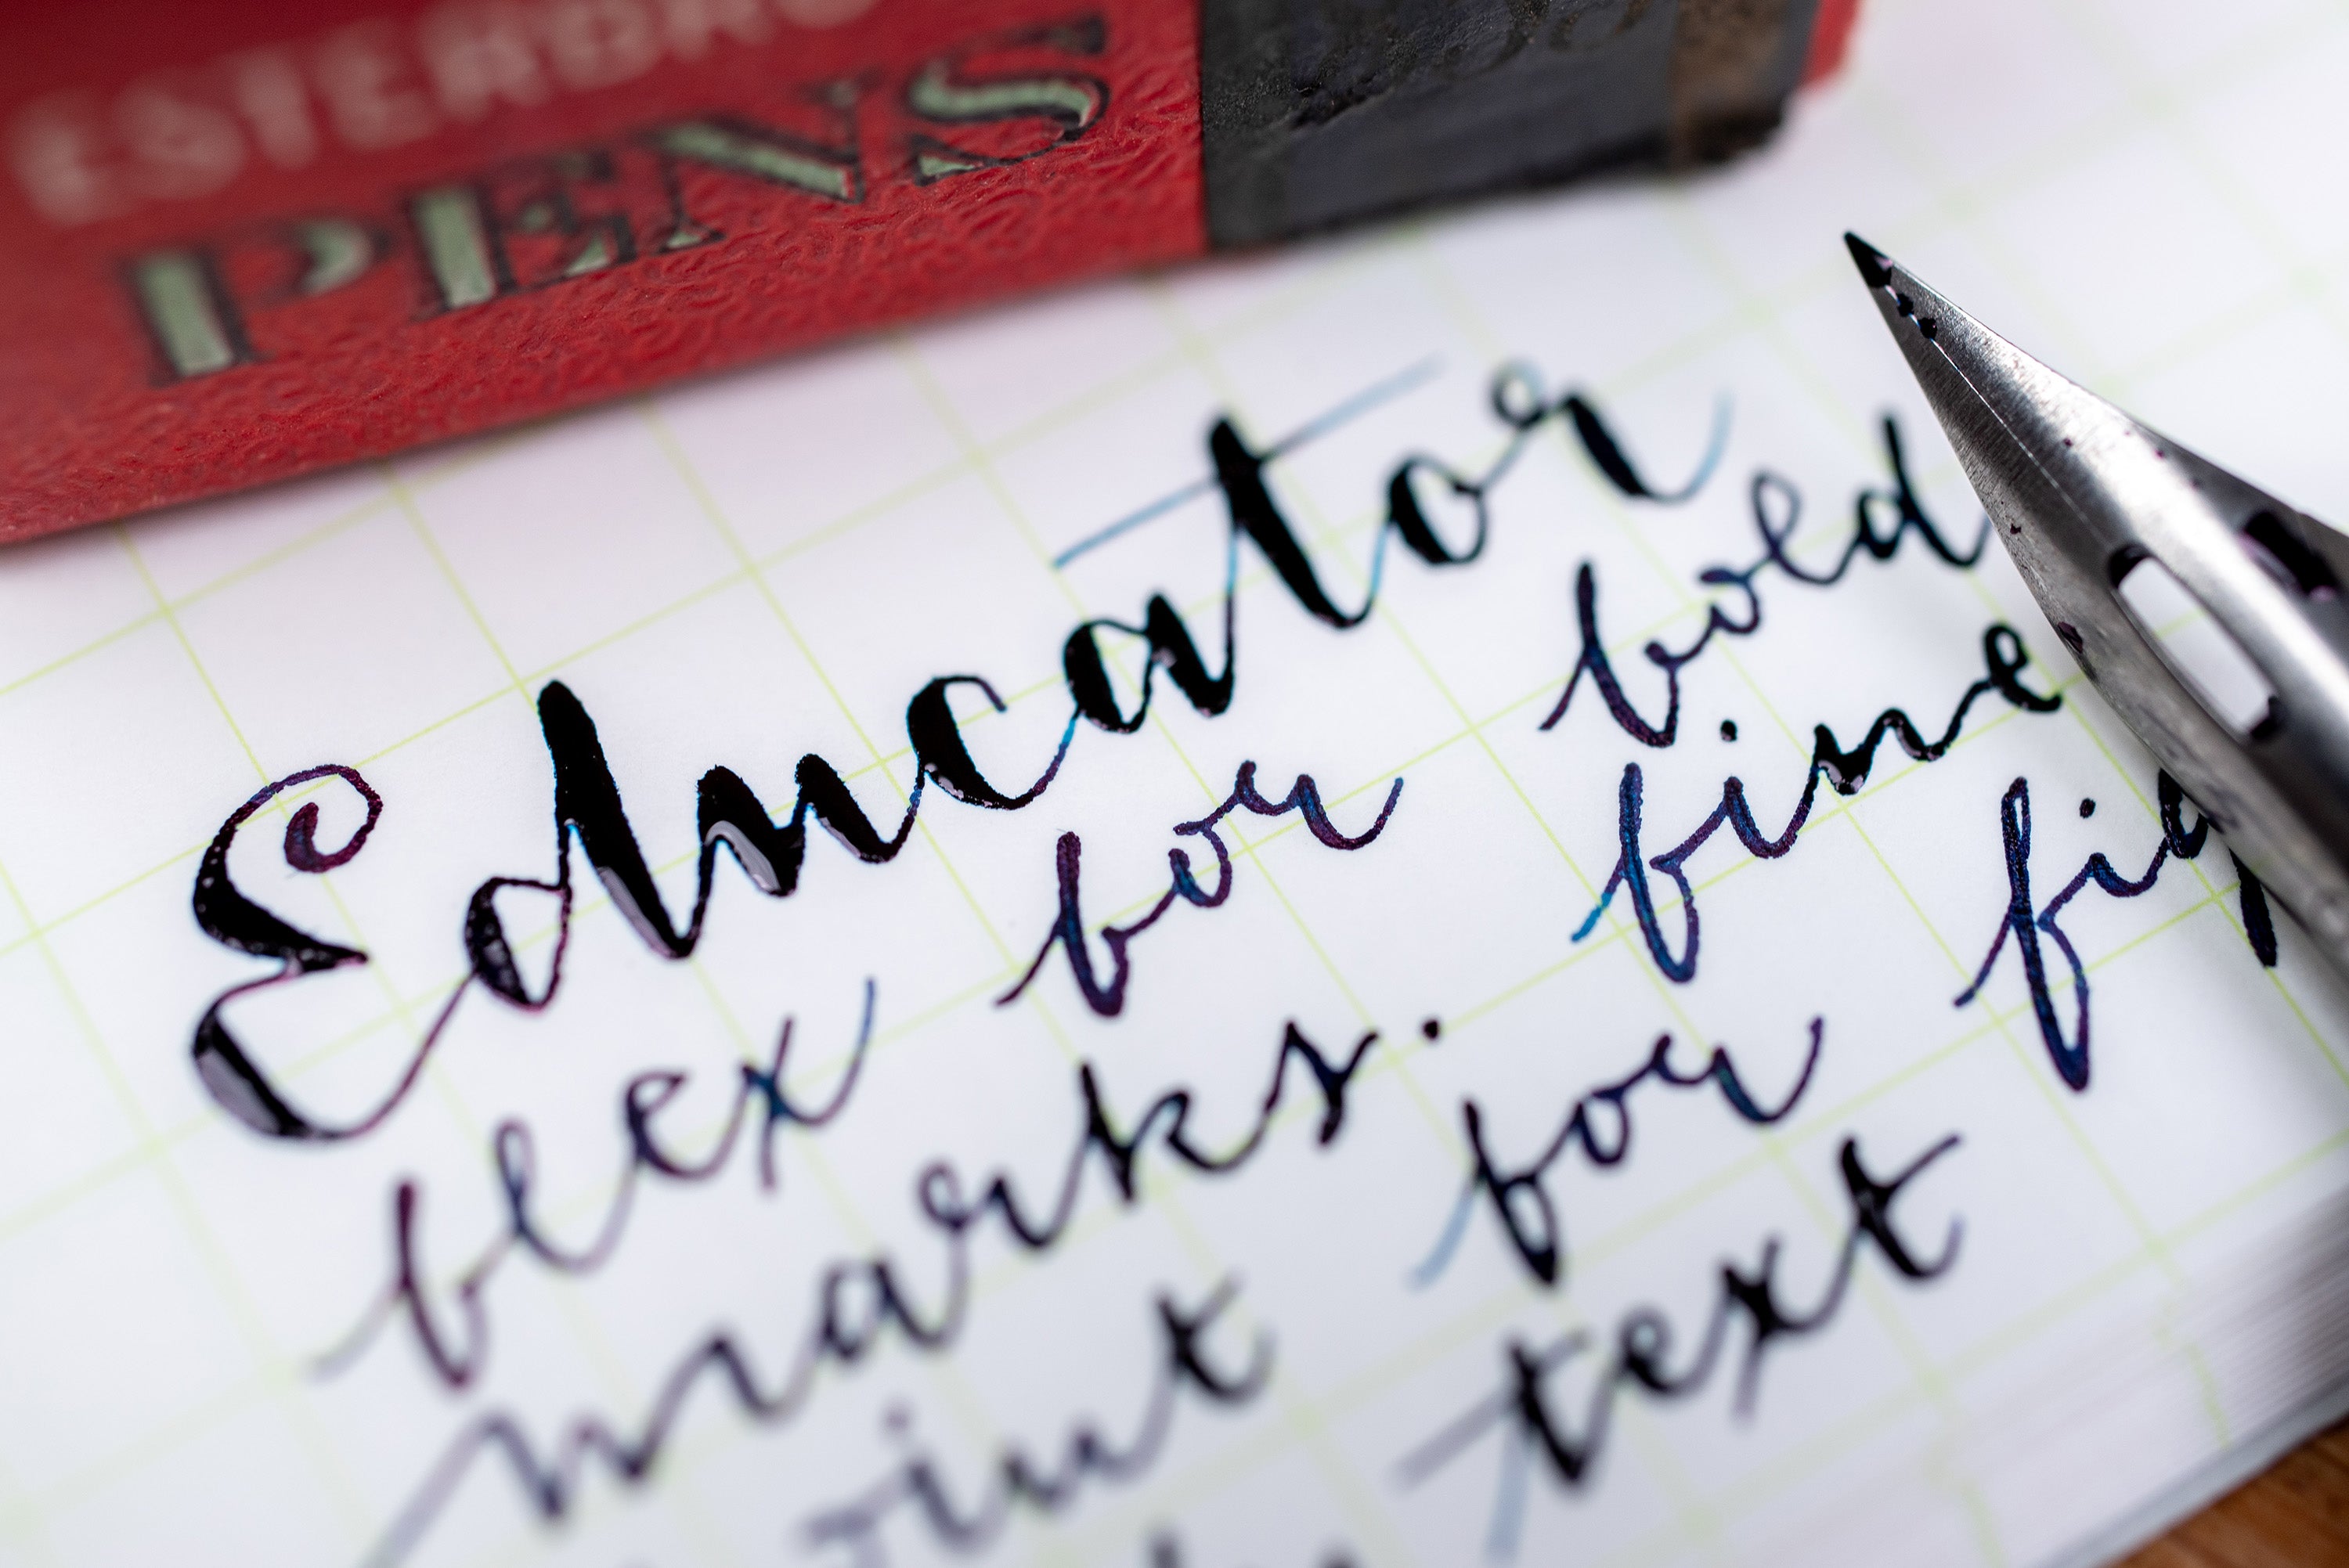 ESTERBRO
PENS
Educator
flex for bold
marks. fine
point for
text